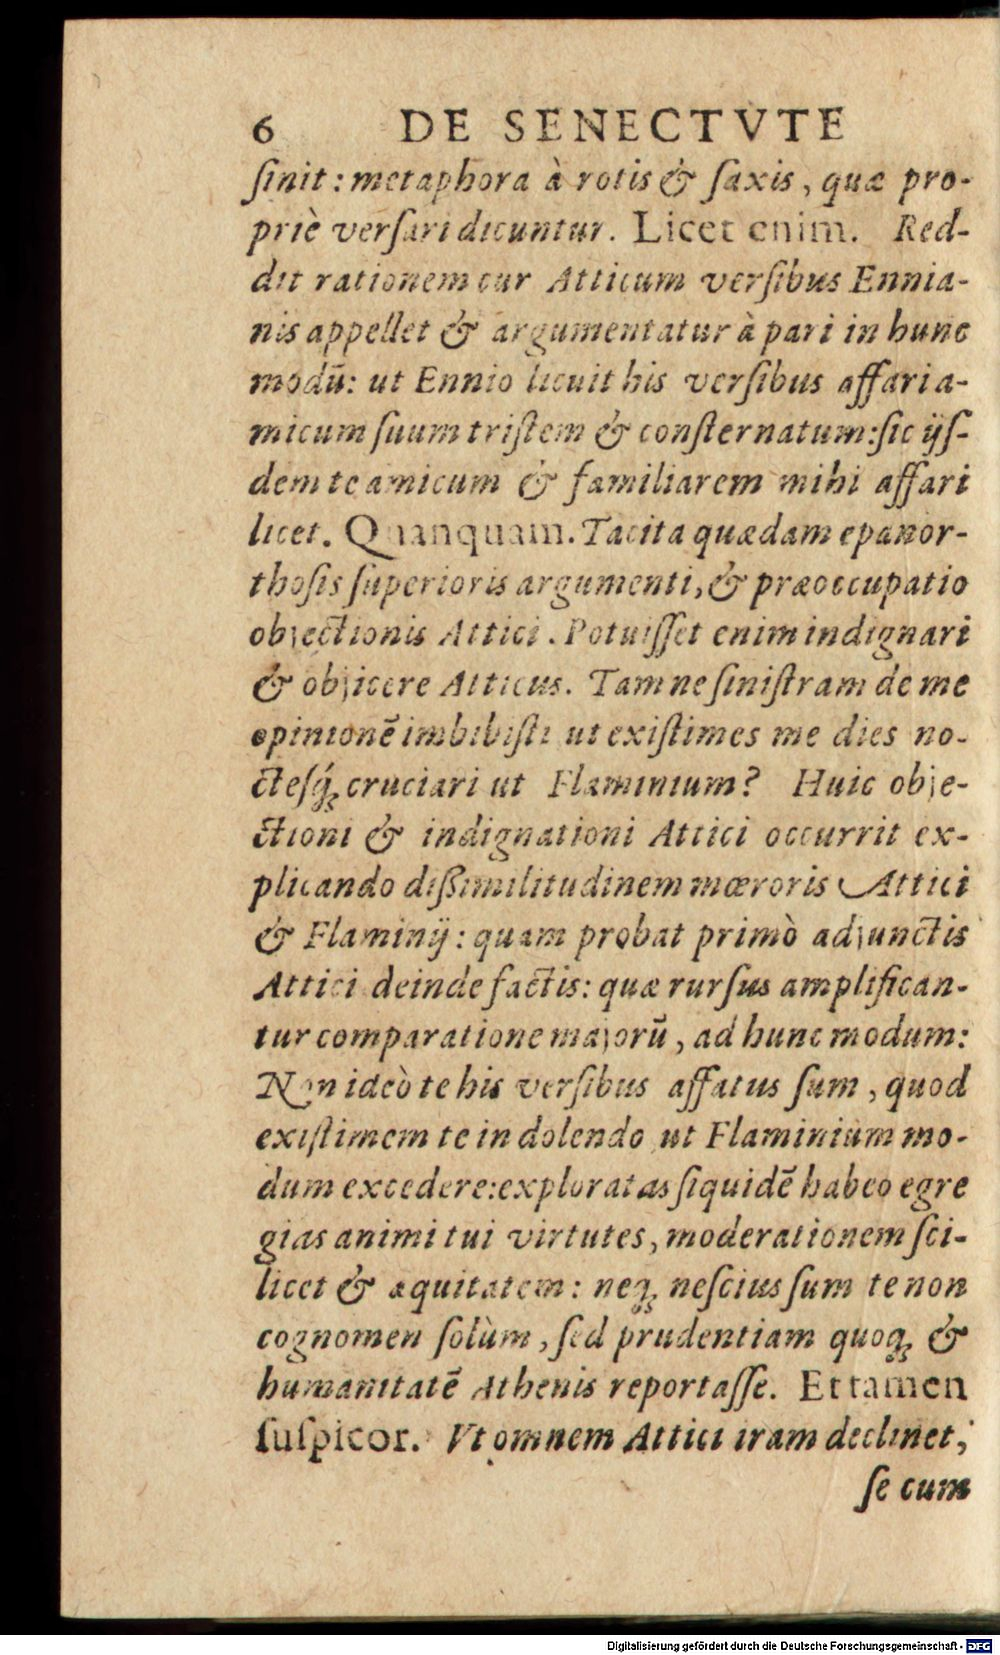 6 DE SENECTVTE
ſinit: metaphora à rotis & ſaxis, quæ pro-
priè verſari dicuntur. Licet enim. Red-
dit rationem cur Atticum verſibus Ennia-
nis appellet & argumentatur à pari in hunc
modū: ut Ennio licuit his verſibus affari a-
micum ſuum triſtem & conſternatum: ſic ijſ-
dem te amicum & familiarem mihi affari
licet. Quanquam. Tacita quædam epanor-
thoſis ſuperioris argumenti, & præoccupatio
objectionis Attici. Potuiſſet enim indignari
& objicere Atticus. Tam ne ſiniſtram de me
opinionē imbibiſti ut exiſtimes me dies no-
cteſq́; cruciari ut Flaminium? Huic obje-
ctioni & indignationi Attici occurrit ex-
plicando diſſimilitudinem mœroris Attici
& Flaminij: quam probat primò adjunctis
Attici deinde factis: quæ rurſus amplifican-
tur comparatione majorū, ad hunc modum:
Non ideò te his verſibus affatus ſum, quod
exiſtimem te in dolendo ut Flaminium mo-
dum excedere: exploratas ſiquidē habeo egre
gias animi tui virtutes, moderationem ſci-
licet & æquitatem: neq; neſcius ſum te non
cognomen ſolùm, ſed prudentiam quoq; &
humanitatē Athenis reportaſſe. Et tamen
ſuſpicor. Vt omnem Attici iram declinet,
ſe cum
Digitalisierung gefördert durch die Deutsche Forschungsgemeinschaft - DFG